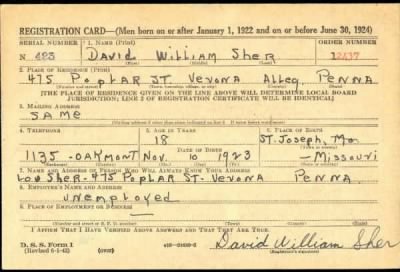 REGISTRATION CARD—(Men born on or after January 1, 1922 and on or before June 30, 1924)
SERIAL NUMBER 1. NAME (Print) ORDER NUMBER
N 483 DAVID William Sher 12437
(First) (Middle) (Last)
2. PLACE OF RESIDENCE (Print)
475 PoPLAR ST. Verona Alleg. PENNA
(Number and street) (Town, township, village, or city) (County) (State)
[THE PLACE OF RESIDENCE GIVEN ON THE LINE ABOVE WILL DETERMINE LOCAL BOARD
JURISDICTION; LINE 2 OF REGISTRATION CERTIFICATE WILL BE IDENTICAL]
3. MAILING ADDRESS
SAME
4. TELEPHONE 5. AGE IN YEARS 6. PLACE OF BIRTH
18 ST. Joseph, Mo.
DATE OF BIRTH
1135-OAKMONT Nov. 10 1923 -Missouri
7. NAME AND ADDRESS OF PERSON WHO WILL ALWAYS KNOW YOUR ADDRESS
Sher-475 PoPLAR ST- Verona PENNA.
8. EMPLOYER'S NAME AND ADDRESS
Unemployed
9. PLACE OF EMPLOYMENT OR BUSINESS
(Number and street or R. F. D. number) (Town) (County) (State)
I AFFIRM THAT I HAVE VERIFIED ABOVE ANSWERS AND THAT THEY ARE TRUE.
D. S. S. Form 1
(Revised 6-1-42) (over)
David William Sher
(Registrant's signature)